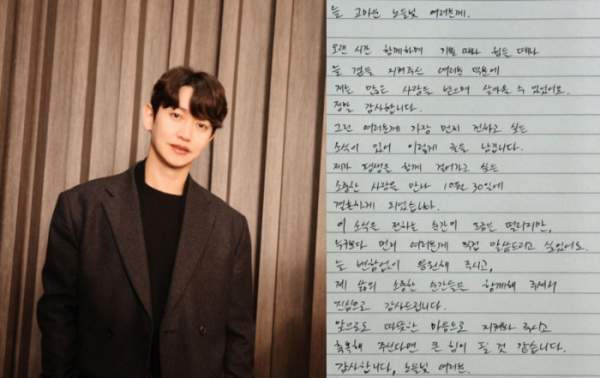 늘 고마운 노을빛 여러분께.
오랜 시간 함께하며 기쁠 때나 힘든 때나
늘 곁을 지켜주신 여러분 덕분에
저는 많은 사랑을 받으며 살아올 수 있었어요.
정말 감사합니다.
그런 여러분께 가장 먼저 전하고 싶은
소식이 있어 이렇게 글을 남깁니다.
제가 평생을 함께 걸어가고 싶은
소중한 사람을 만나 10월 30일에
결혼하게 되었습니다.
이 소식을 전하는 순간이 조금은 떨리지만,
누구보다 먼저 여러분께 직접 말씀드리고 싶었어요.
늘 변함없이 응원해 주시고,
제 삶의 소중한 순간들을 함께해 주셔서
진심으로 감사드립니다.
앞으로도 따뜻한 마음으로 지켜봐 주시고
축복해 주신다면 큰 힘이 될 것 같습니다.
감사합니다, 노을빛 여러분.